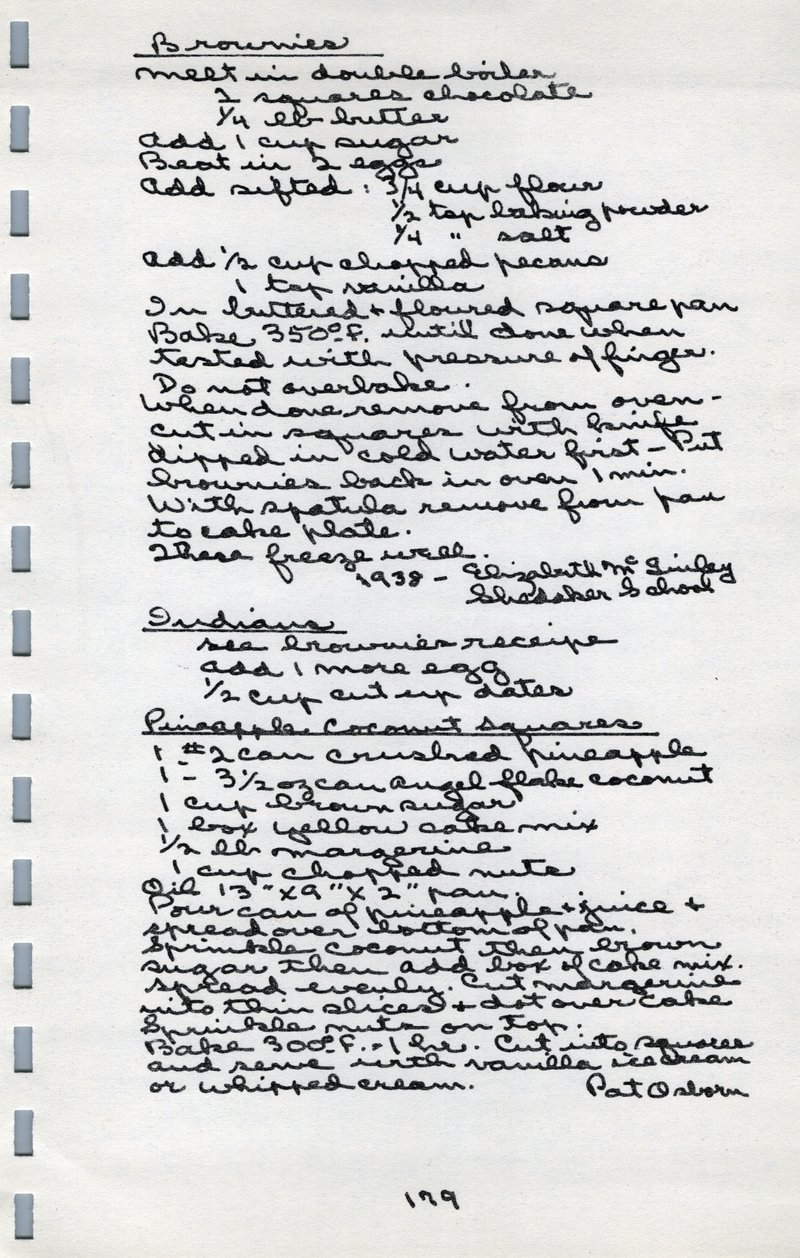 Brownies
Melt in double boiler
2 squares chocolate
1/4 lb butter
Add 1 cup sugar
Beat in 2 eggs
Add sifted: 3/4 cup flour
1/2 tsp baking powder
1/4 " salt
Add 1/2 cup chopped pecans
1 tsp vanilla
In buttered + floured square pan
Bake 350° F. until done when
tested with pressure of finger.
Do not overbake.
When done remove from oven -
cut in squares with knife
dipped in cold water first - Put
brownies back in oven 1 min.
With spatula remove from pan
to cake plate.
These freeze well.
1938 - Elizabeth
School
Indians
see brownies receipe
add 1 more egg
1/2 cup cut up dates
Pineapple Coconut Squares
1 #2 can crushed pineapple
1 - 3 1/2 oz can angel flake coconut
1 cup brown sugar
1 box yellow cake mix
1/2 lb margerine
1 cup chopped nuts
Oil 13" x 9" x 2" pan.
Pour can of pineapple + juice +
spread over bottom of pan.
Sprinkle coconut then brown
sugar then add box of cake mix.
Spread evenly. Cut margerine
into thin slices + dot over cake
Sprinkle nuts on top.
Bake 300° F. - 1 hr. Cut into squares
and serve with vanilla ice cream
or whipped cream.
Pat Osborn
179